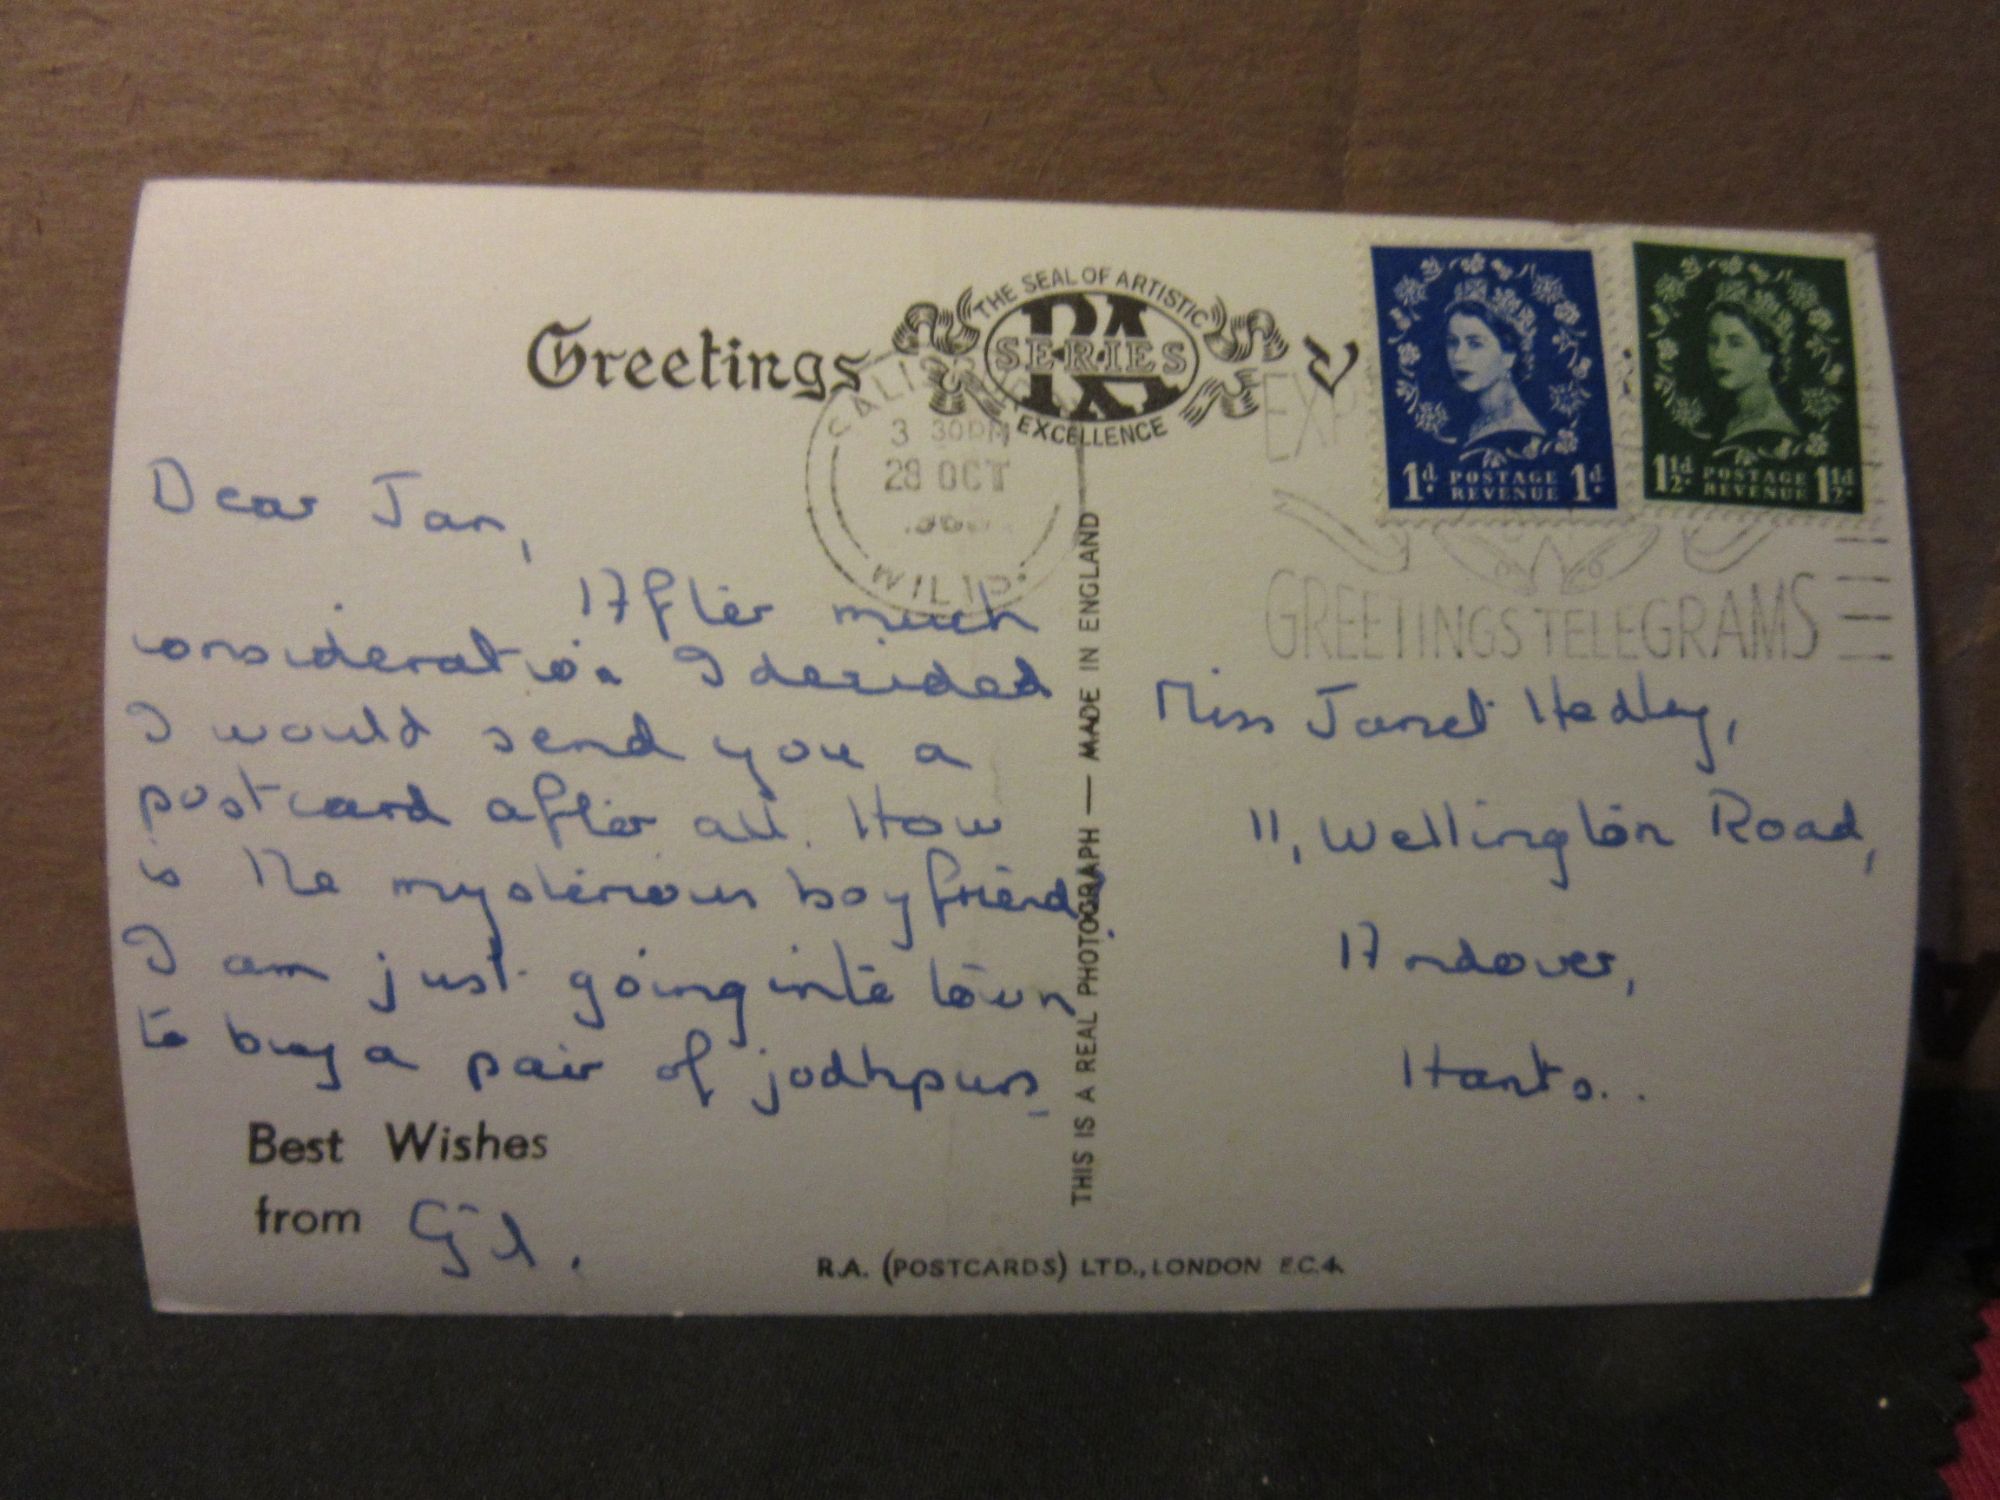 Greetings
THE SEAL OF ARTISTIC
RA
SERIES
EXCELLENCE
3 30PM
28 OCT
1d. POSTAGE REVENUE 1d.
1½d. POSTAGE REVENUE 1½d.
GREETINGS TELEGRAMS
Dear Jan,
After much
consideration I decided
I would send you a
postcard after all. How
is the mysterious boyfriend?
I am just going into town
to buy a pair of jodhpurs
Best Wishes
from Gil.
THIS IS A REAL PHOTOGRAPH — MADE IN ENGLAND
Miss Janet Hedley,
11, Wellington Road,
Andover,
Hants..
R.A. (POSTCARDS) LTD., LONDON E.C.4.